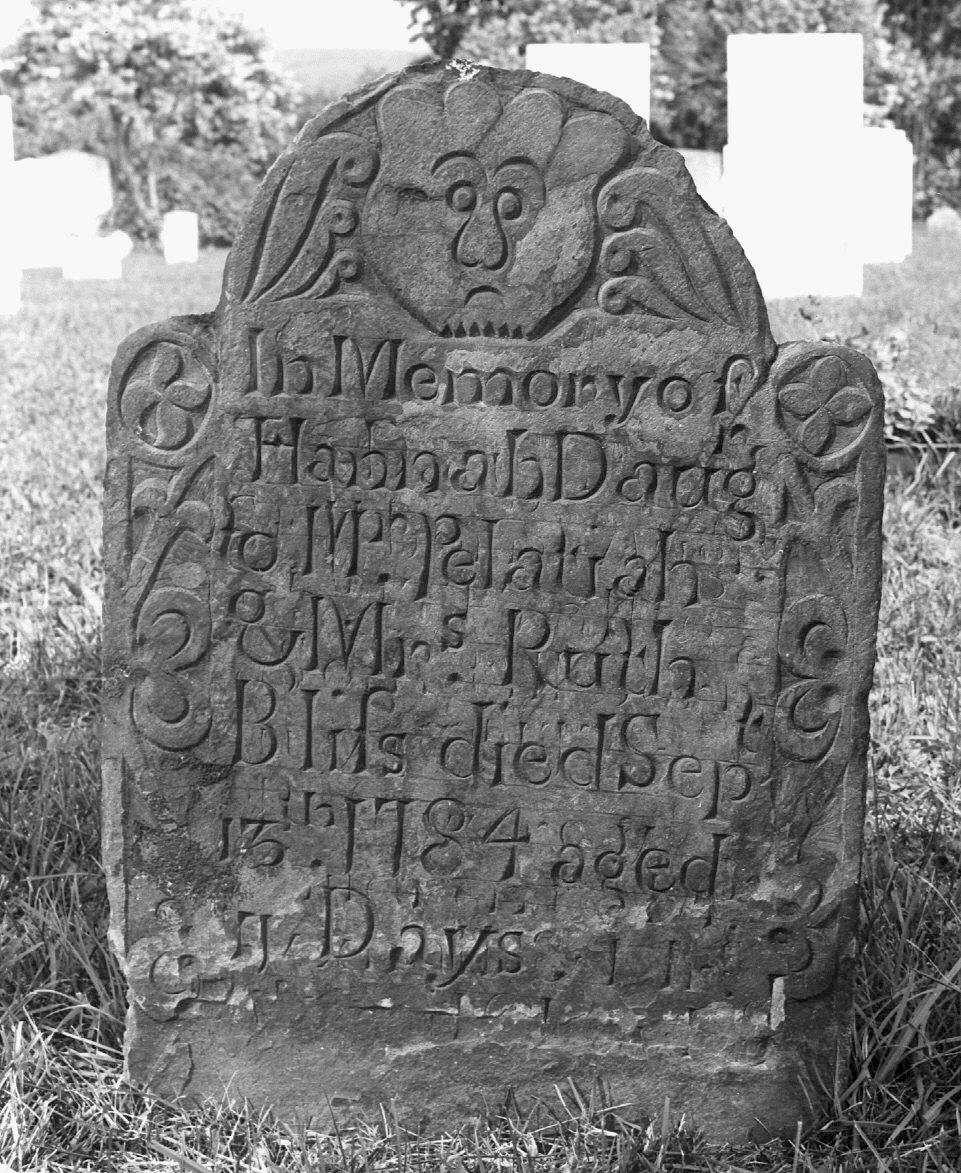 In Memory of
Hannah Daugh
Mr. Pelatiah
& Mrs. Ruth
Bliſs died Sep
13th. 1784 aged
7 Days